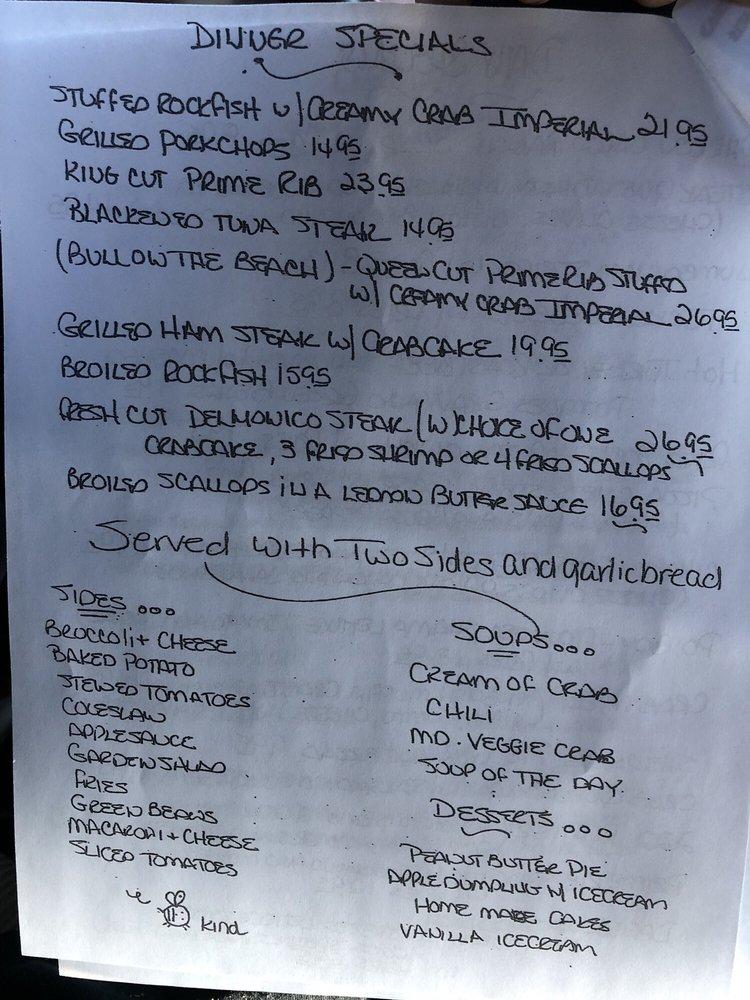 DINNER SPECIALS
STUFFED ROCKFISH w/ CREAMY CRAB IMPERIAL 21.95
GRILLED PORKCHOPS 14.95
KING CUT PRIME RIB 23.95
BLACKENED TUNA STEAK 14.95
(BULL ON THE BEACH) - QUEEN CUT PRIME RIB STUFFED
w/ CREAMY CRAB IMPERIAL 26.95
GRILLED HAM STEAK w/ CRABCAKE 19.95
BROILED ROCKFISH 15.95
FRESH CUT DELMONICO STEAK (w/CHOICE OF ONE 26.95
CRABCAKE, 3 FRIED SHRIMP OR 4 FRIED SCALLOPS)
BROILED SCALLOPS IN A LEMON BUTTER SAUCE 16.95
Served with Two Sides and garlic bread
SIDES ...
BROCCOLI + CHEESE
BAKED POTATO
STEWED TOMATOES
COLESLAW
APPLESAUCE
GARDEN SALAD
FRIES
GREEN BEANS
MACARONI + CHEESE
SLICED TOMATOES
kind
SOUPS...
CREAM OF CRAB
CHILI
MD. VEGGIE CRAB
SOUP OF THE DAY
DESSERTS ...
PEANUT BUTTER PIE
APPLE DUMPLING W/ ICECREAM
HOME MADE CAKES
VANILLA ICECREAM